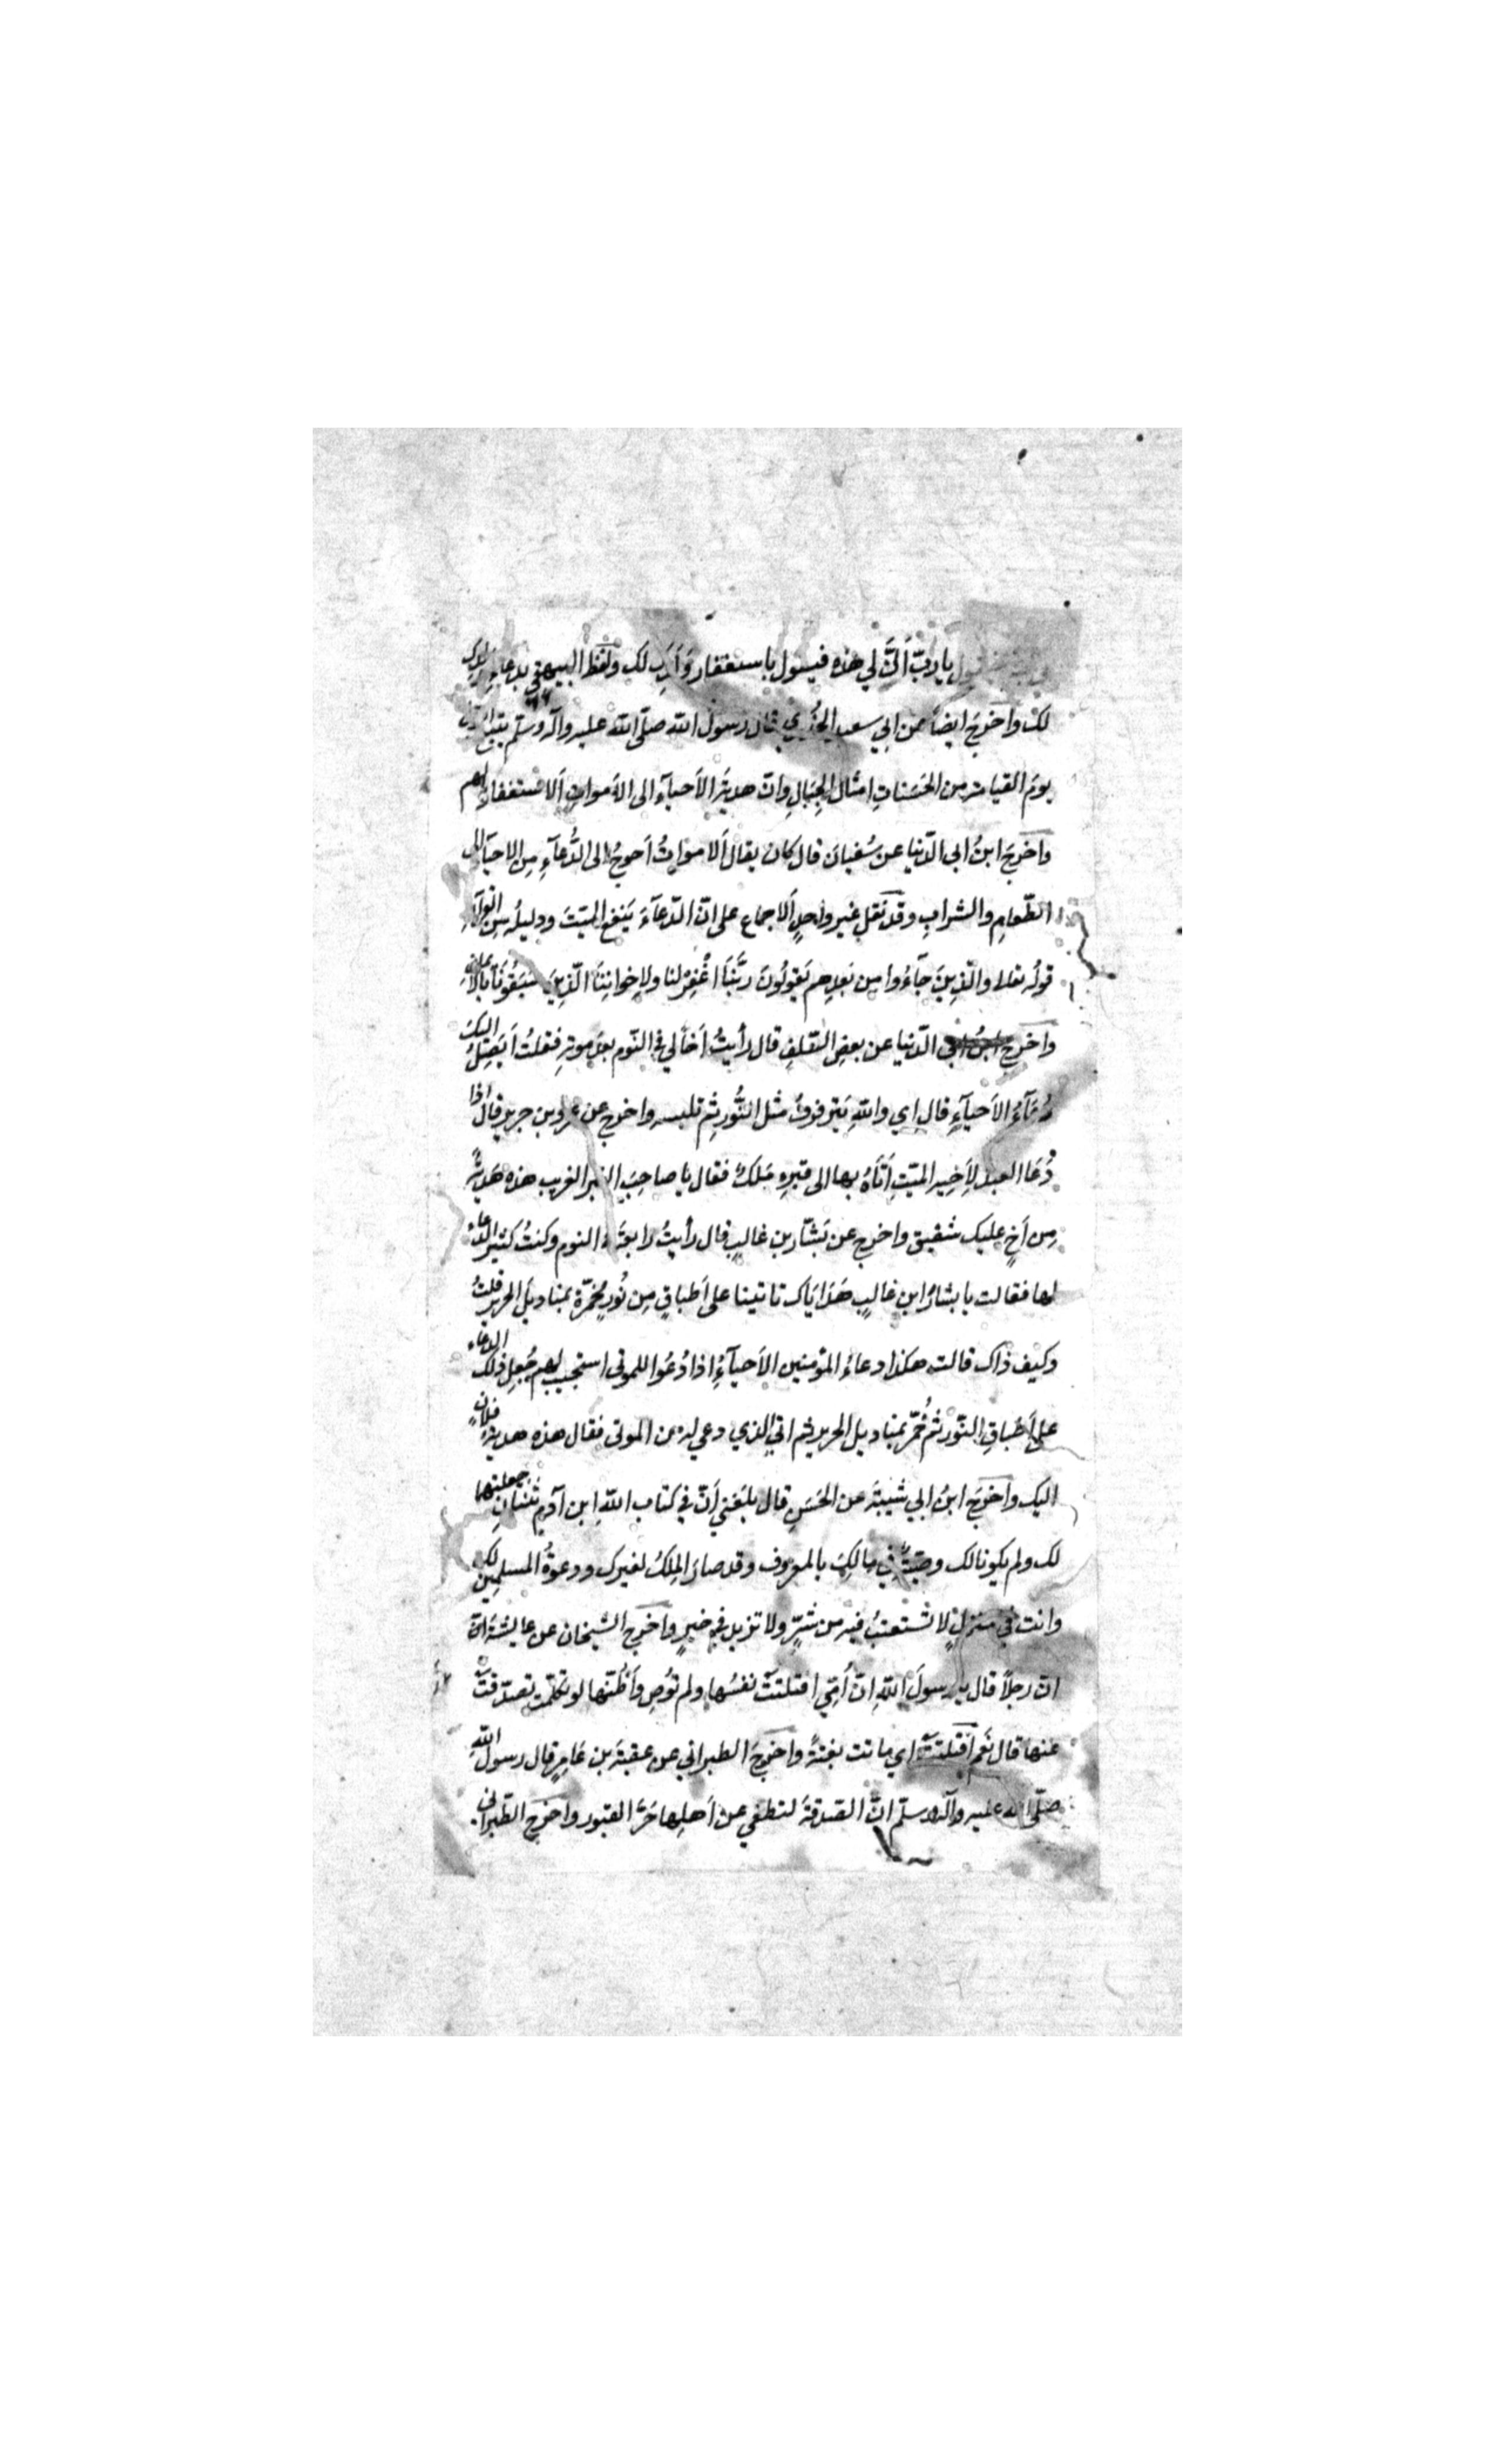 يقول يا ربّ أنّى لي هذه فيقول باستغفار وَلَدِكَ لك ولفظ البيهقي بدعاءِ ولدك
لك واَخرَجَ ايضاً عن ابي سعيد الخُدري قال رسول الله صلّى الله عليه وآله وسلّم يتبع
يومَ القيامة من الحَسَناتِ امثال الجِبَالِ وانّ هديّةَ الاَحيآءِ الى الاَمواتِ اَلاستغفار لهم
واَخرَجَ ابنُ ابي الدّنيا عن سُفيانَ قال كان يقال اَلامواتُ اَحوجُ الى الدُّعآءِ مِن الاحيآءِ الى
الطّعامِ والشرابِ وقد نَقلَ غير واحدٍ اَلاجماع على انّ الدّعآءَ يَنفع الميّتَ ودليلُه مِن القرآنِ
قولُه تعلا والّذِينَ جَآءُوا مِن بَعدِهِم يَقولُونَ رَبَّنَا اغْفِرْ لنا ولاِخوانِنَا الّذِينَ سَبَقُونَا بالاِيمانِ
واَخرَجَ ابنُ ابي الدّنيا عن بعضِ السّلفِ قال رأيتُ اَخاً لي في النّوم بعدَ موتهِ فقلتُ اَيَصِلُ اليكَ
دُعَآءُ الاَحيآءِ قال اِي واللهِ يَترفرفُ مثل النُّورِ ثم تلبسه واخرج عن عمرو بن جرير قال اذا
دَعَا العبد لاَخيه الميّتِ اَتَاهُ بها الى قبرهِ مَلَكٌ فقال يا صاحِبَ القبر الغريب هذه هَديّةٌ
مِن اَخٍ عليك شفيق واخرج عن بَشّار بن غالبٍ قال رأيتُ رابعَة في النوم وكنتُ كثير الدّعاء
لها فقالت يا بشارُ ابن غالبٍ هَدَايَاك تاتينا على اَطباقٍ مِن نُورٍ مُخمّرة بمناديل الحرير قلتُ
وكيف ذاك قالت هكذا دعاءُ المؤمنين الاَحيآءِ اذا دُعَوا للموتى استجيب لهم جُعِل ذلك الدعاء
على اَطباقِ النّور ثم خُمّر بمناديل الحرير ثم اتي الذي دعي له من الموتى فقال هذه هدية فلانٍ
اليك واَخرَجَ ابنُ ابي شيبَةَ عن الحَسَنِ قال بلَغني اَنّ في كتاب اللهِ ابن آدم ثنتانِ جعلتهما
لك ولم يكونا لك وصيّةٌ في مالِكَ بالمعروف وقد صارَ المِلكُ لغيرك ودعوةُ المسلمين لك
وانت في منزلٍ لا تُستعتبُ فيه من شرٍّ ولا تزيد في خيرٍ واَخرَج الشيخان عن عايشة
انّ رجلاً قال يا رسولَ اللهِ انّ اُمّي افتلتَتْ نفسُها ولم تُوصِ واَظُنّها لو تكلّمت تصدّقتْ
عنها قال نَعَم افتلتَتْ اي ماتت بغتةً واَخرَجَ الطبراني عن عقبة بن عَامِرٍ قال رسول اللهِ
صلّى الله عليه وآله وسلّم انَّ الصدقةَ لتطفي عن اَهلِها حَرَّ القبور واَخرَج الطبرانى